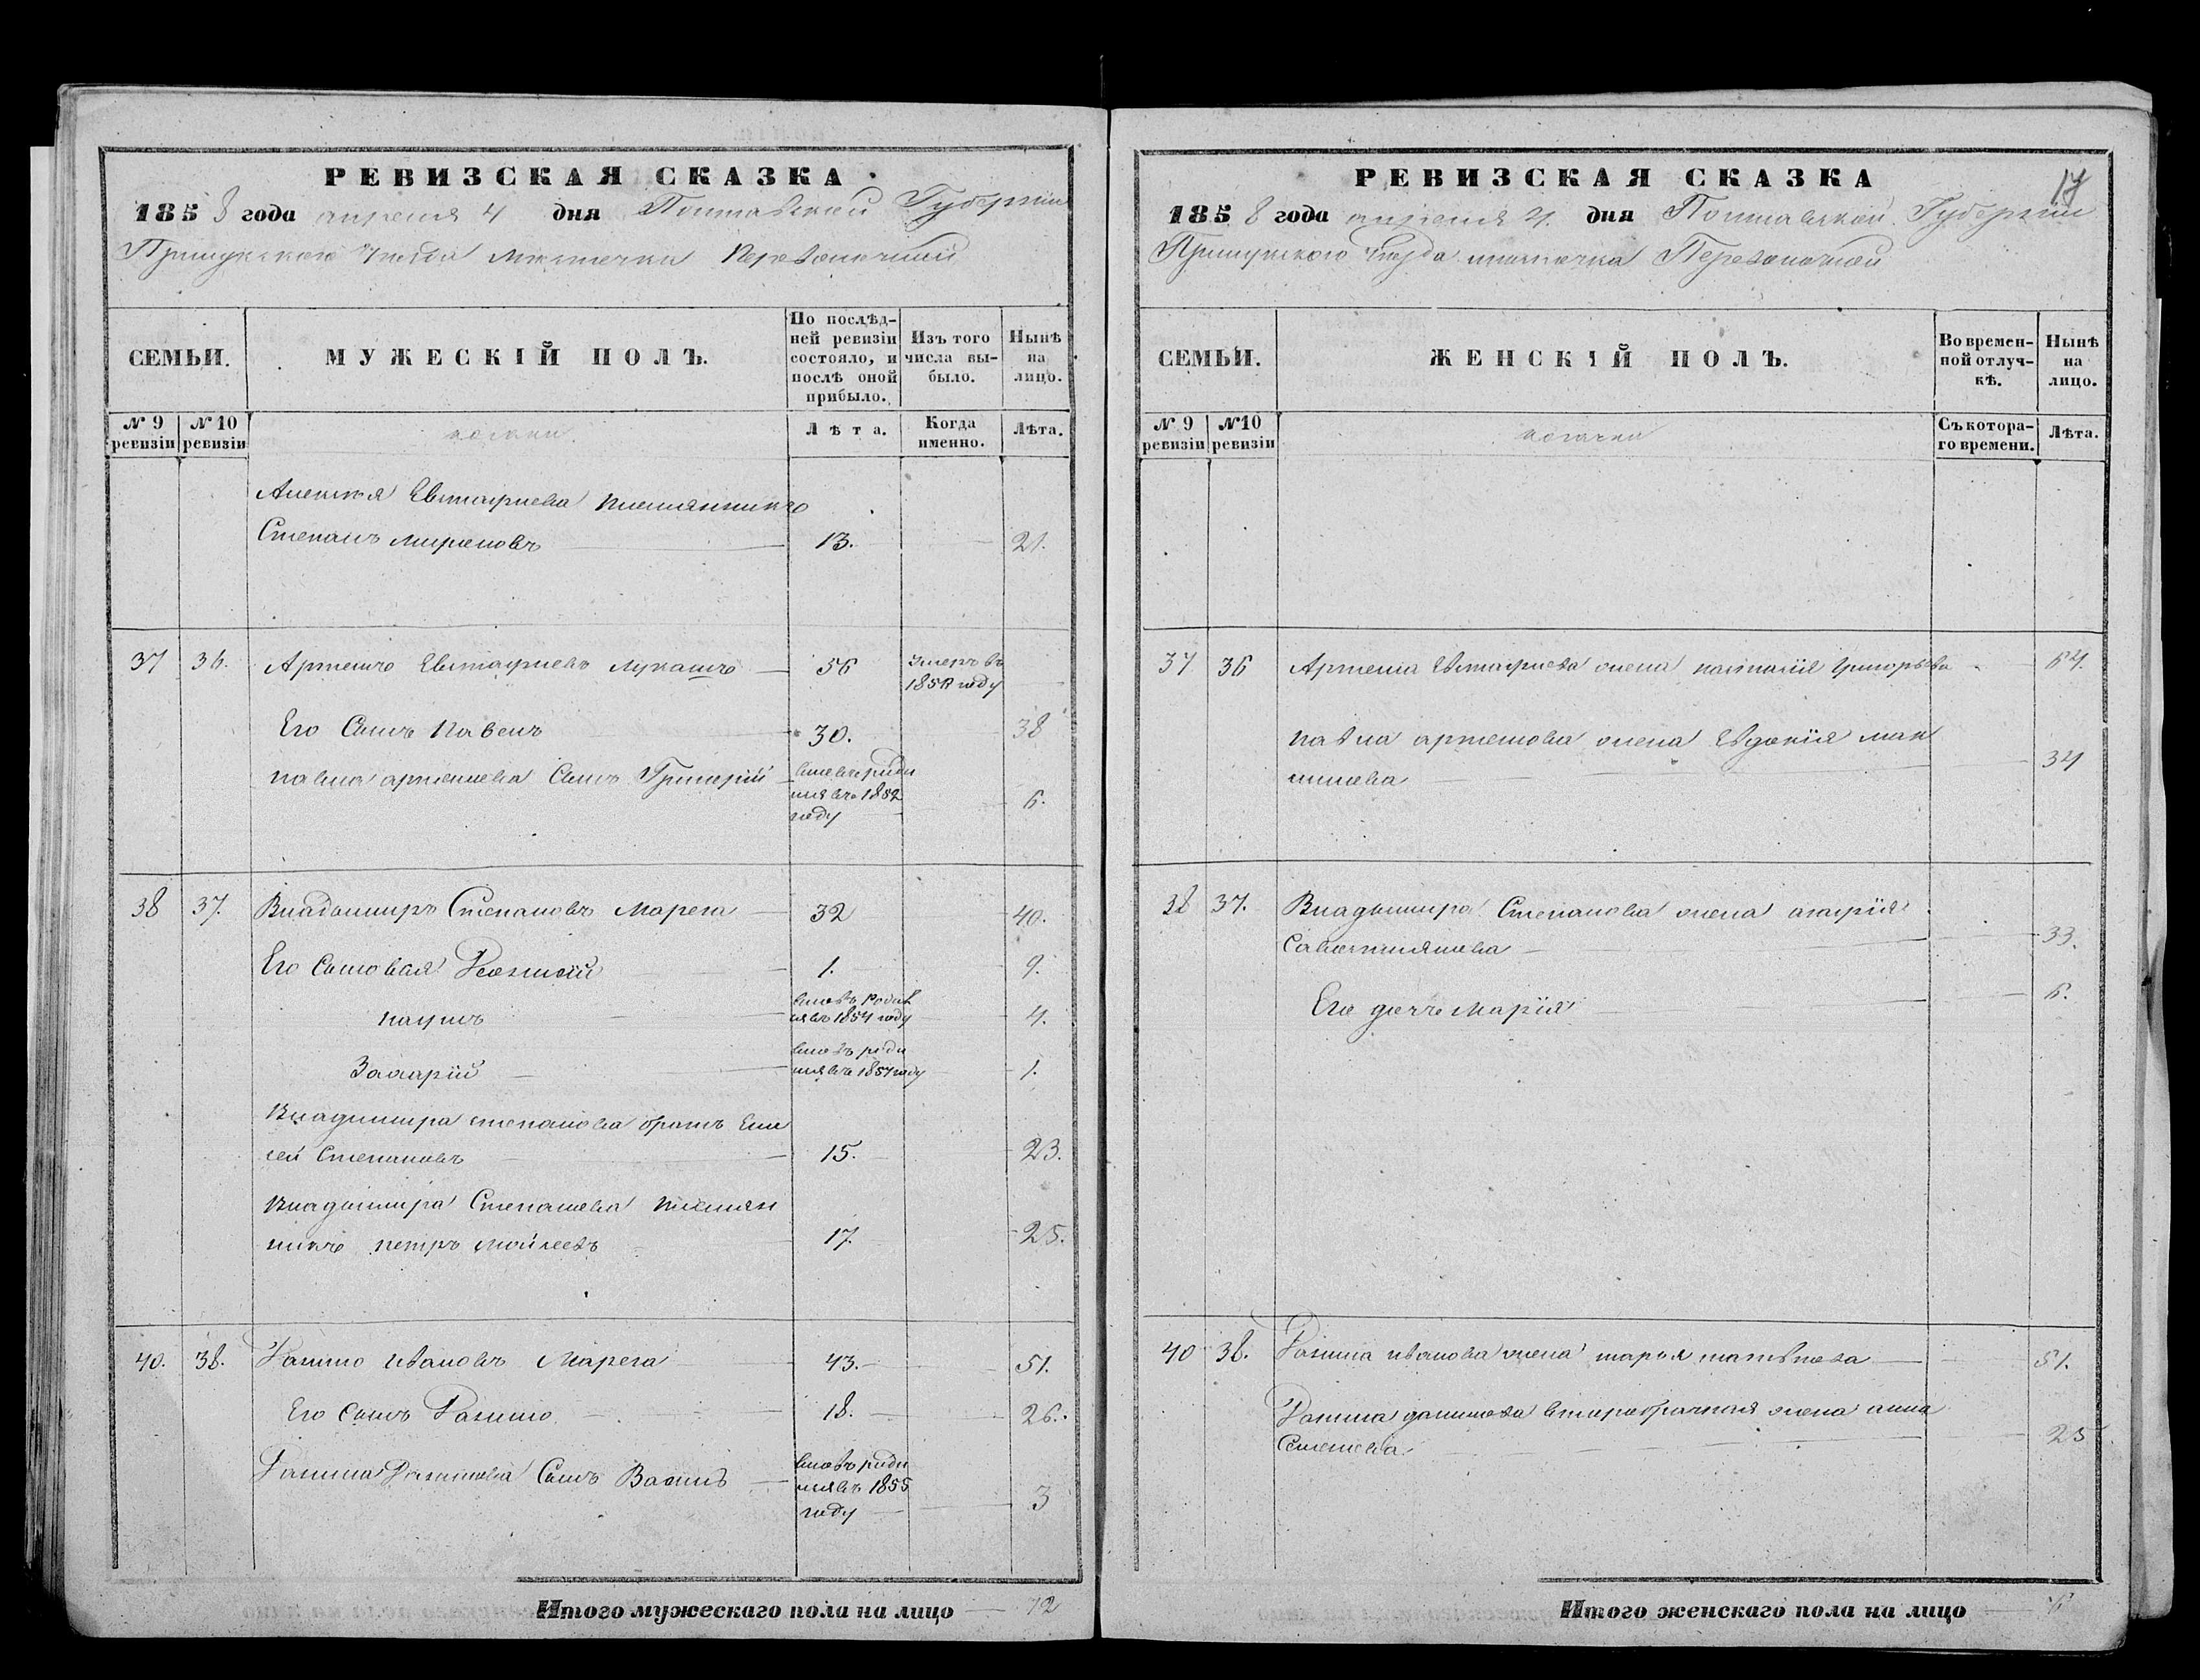 РЕВИЗСКАЯ СКАЗКА.
1858 года апреля 4 дня Полтавской Губернии
Прилукского Уезда Местечка Переволочной
СЕМЬИ.
МУЖЕСКІЙ ПОЛЪ.
По послѣд-
ней ревизіи
состояло, и
послѣ оной
прибыло.
Изъ того
числа вы-
было.
Нынѣ
на
лицо.
№ 9
ревизіи
№ 10
ревизіи
козаки.
Лѣта.
Когда
именно.
Лѣта.
Алексея Евстафиева племянникъ
Степанъ Мироновъ 13. 21.
37 36. Артемъ Евстафиевъ Лукашъ 56 умеръ въ
году
Его Сынъ Павелъ 30. 38
Павла Артемиева Сынъ Григорий
въ 1852
году 6.
38 37. Владимиръ Степановъ Марега 32 40.
Его Сыновья 1. 9.
вновь роди
ся въ 1854 году 4.
Захарій вновь роди
лся въ 1857 году 1.
Владимира Степанова братъЕли
сей Степановъ 15. 23.
Владимира Степанова племян
никъ Петръ Мойсеевъ 17. 25.
40. 38. Данило Ивановъ Марега 43. 51.
Его Сынъ Данило 18. 26.
Данила Данилова Сынъ Василь вновь роди
лся въ 1855
году 3
Итого мужескаго пола на лицо 12
17
РЕВИЗСКАЯ СКАЗКА
1858 года апреля 4. дня Полтавской Губернии
Прилукского Уезда местечка Переволочной
СЕМЬИ.
ЖЕНСКІЙ ПОЛЪ.
Во времен-
ной отлуч-
кѣ.
Нынѣ
на
лицо.
№ 9
ревизіи
№10
ревизіи
козачки
Съ котора-
го времени.
Лѣта.
37 36 Артема Евстафиева жена Григорьева 64.
Павла Артемова жена Евдокія Мак
симова 34
38 37. Владимира Степанова жена
33.
Его дочь Марія 6.
40 38. Данила Иванова жена Марья Матвѣева 51.
Данила Данилова второбрачная жена Анна
Семенова. 25
Итого женскаго пола на лицо 6